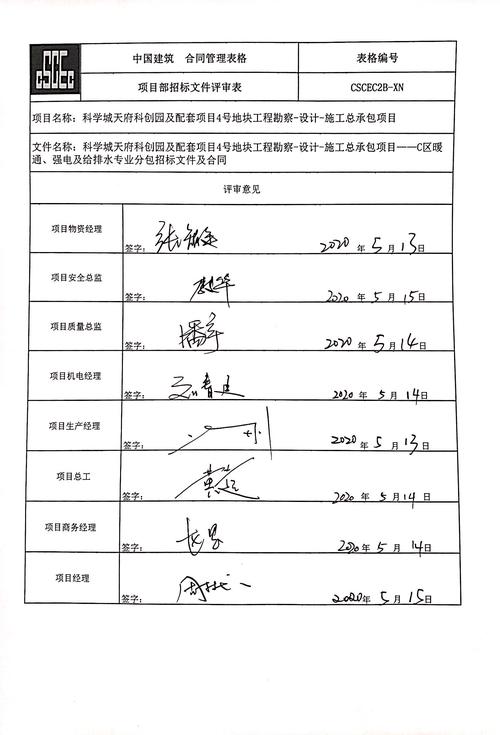 CSCEC
中国建筑 合同管理表格
表格编号
项目部招标文件评审表
CSCEC2B-XN
项目名称：科学城天府科创园及配套项目4号地块工程勘察-设计-施工总承包项目
文件名称：科学城天府科创园及配套项目4号地块工程勘察-设计-施工总承包项目——C区暖
通、强电及给排水专业分包招标文件及合同
评审意见
项目物资经理
签字：
2020 年 5 月 13 日
项目安全总监
签字：
2020 年 5 月 15 日
项目质量总监
签字：
2020 年 5 月 14 日
项目机电经理
签字：
2020 年 5 月 14 日
项目生产经理
签字：
2020 年 5 月 13 日
项目总工
签字：
2020 年 5 月 14 日
项目商务经理
签字：
2020 年 5 月 14 日
项目经理
签字：
2020 年 5 月 15 日